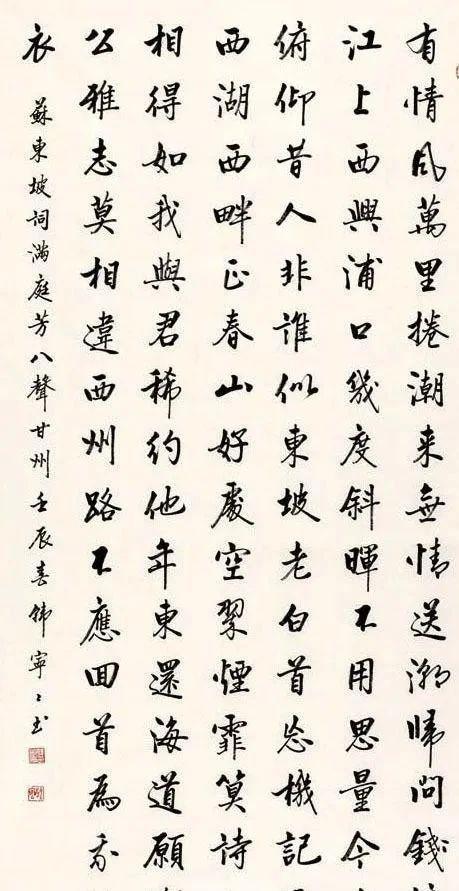 有情風萬里捲潮来無情送潮歸問錢
江上西興浦口幾度斜暉不用思量今
俯仰昔人非誰似東坡老白首忘機記
西湖西畔正春山好處空翠煙霏算詩
相得如我與君稀約他年東還海道願
公雅志莫相違西州路不應回首為我
衣
蘇東坡詞滿庭芳八聲甘州壬辰寧〻书